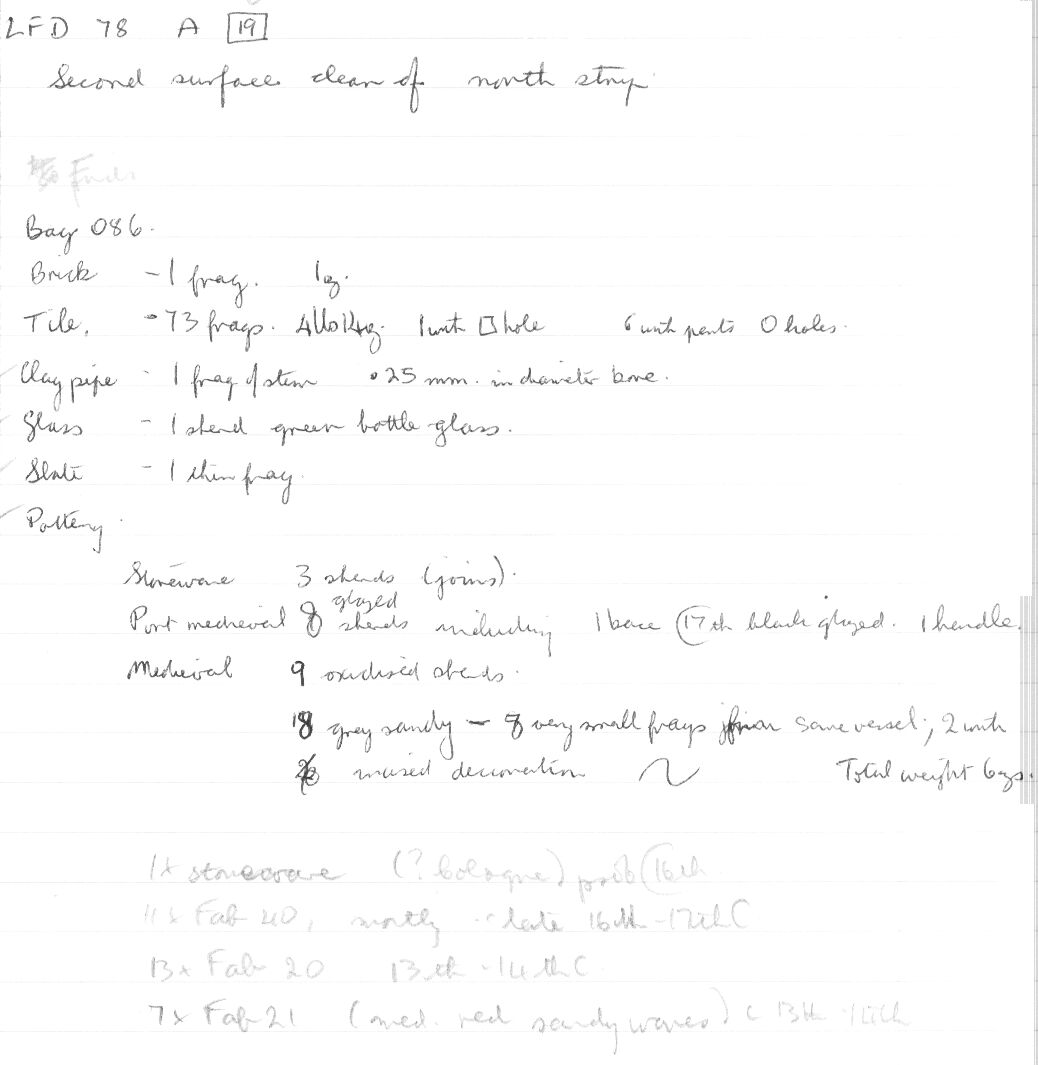 LFD 78 A 19
Second surface clean of north strip
Finds
Bag 086.
Brick - 1 frag. 1g.
Tile, - 73 frags. 1 with □ hole 6 with parts O holes.
Clay pipe - 1 frag of stem .25 mm. in diameter bore.
Glass - 1 sherd green bottle glass.
Slate - 1 thin frag.
Pottery
Stoneware 3 sherds (joins).
Post medieval 8 glazed sherds including 1 base 17th black glazed. 1 handle.
Medieval 9 oxidised sherds.
18 grey sandy - 8 very small frags from same vessel; 2 with
incised decoration Total weight 6ozs.
1x stoneware (? Cologne) prob 16th
11x Fab 40, mostly late 16th-17thC
13x Fab 20 13th-14thC
7x Fab 21 (med. red sandy wares) c 13th-14th